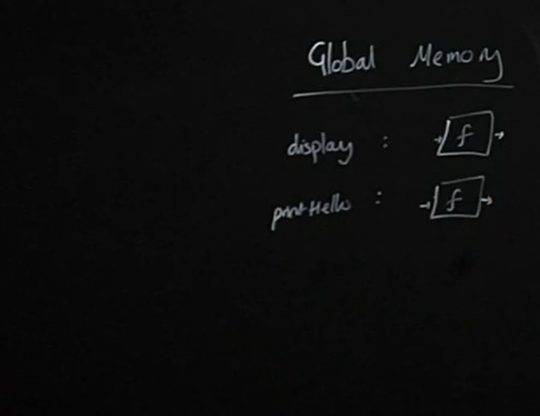 Global Memory
display : f
printHello : f